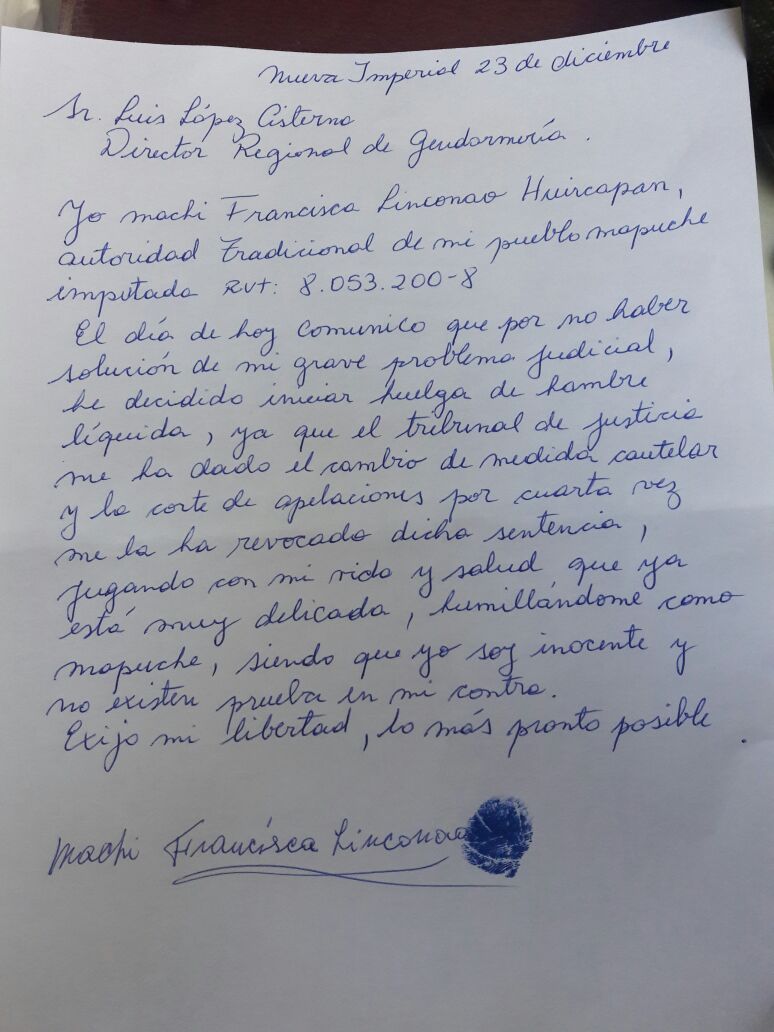 Nueva Imperial 23 de diciembre
Sr. Luis López Cisterna
Director Regional de Gendarmería.
Yo machi Francisca Linconao Huircapan,
autoridad tradicional de mi pueblo mapuche
imputada RUT: 8.053.200-8
El día de hoy comunico que por no haber
solución de mi grave problema judicial,
he decidido iniciar huelga de hambre
líquida, ya que el tribunal de justicia
me ha dado el cambio de medida cautelar
y la corte de apelaciones por cuarta vez
me la ha revocado dicha sentencia,
jugando con mi vida y salud que ya
está muy delicada, humillándome como
mapuche, siendo que yo soy inocente y
no existen prueba en mi contra.
Exijo mi libertad, lo más pronto posible.
Machi Francisca Linconao